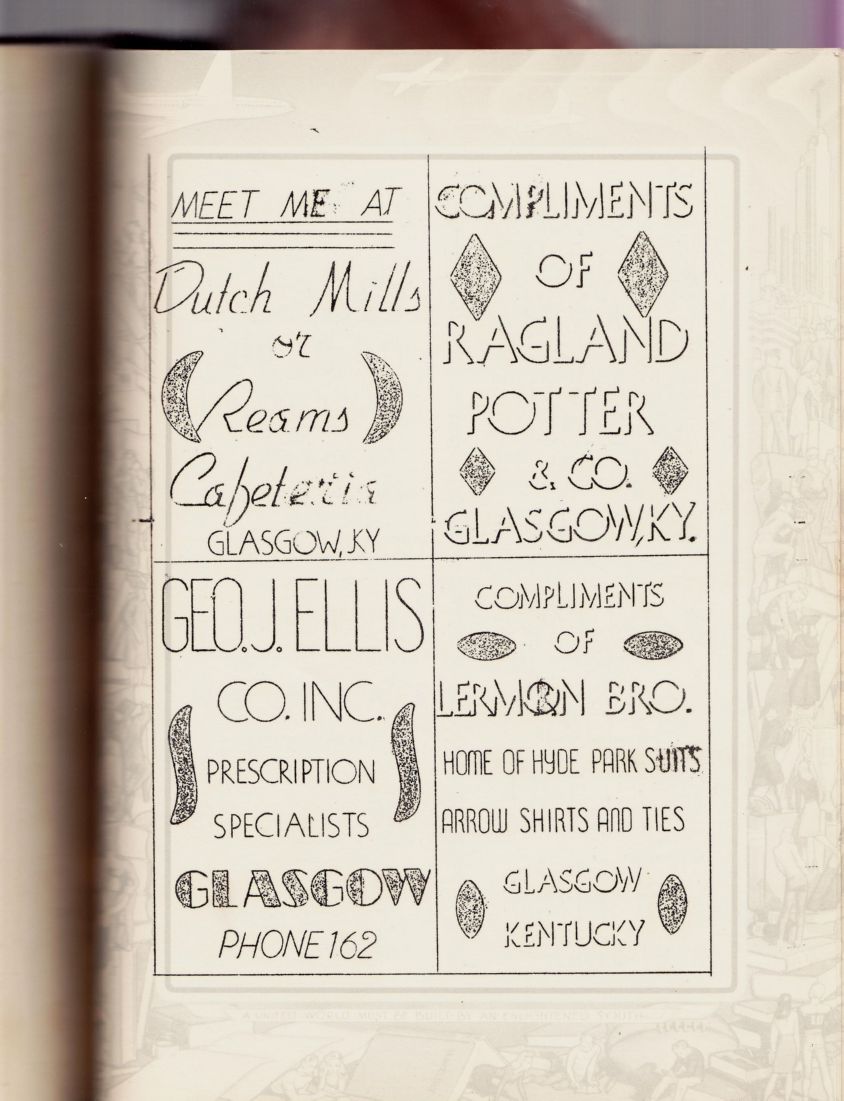 MEET ME AT
Dutch Mills
or
Reams
Cafeteria
GLASGOW, KY
COMPLIMENTS
OF
RAGLAND
POTTER
& CO.
GLASGOW, KY.
GEO. J. ELLIS
CO. INC.
PRESCRIPTION
SPECIALISTS
GLASGOW
PHONE 162
COMPLIMENTS
OF
LERMAN BRO.
HOME OF HYDE PARK SUITS
ARROW SHIRTS AND TIES
GLASGOW
KENTUCKY
A UNITED WORLD MUST BE BUILD BY AN ENLIGHTENED YOUTH